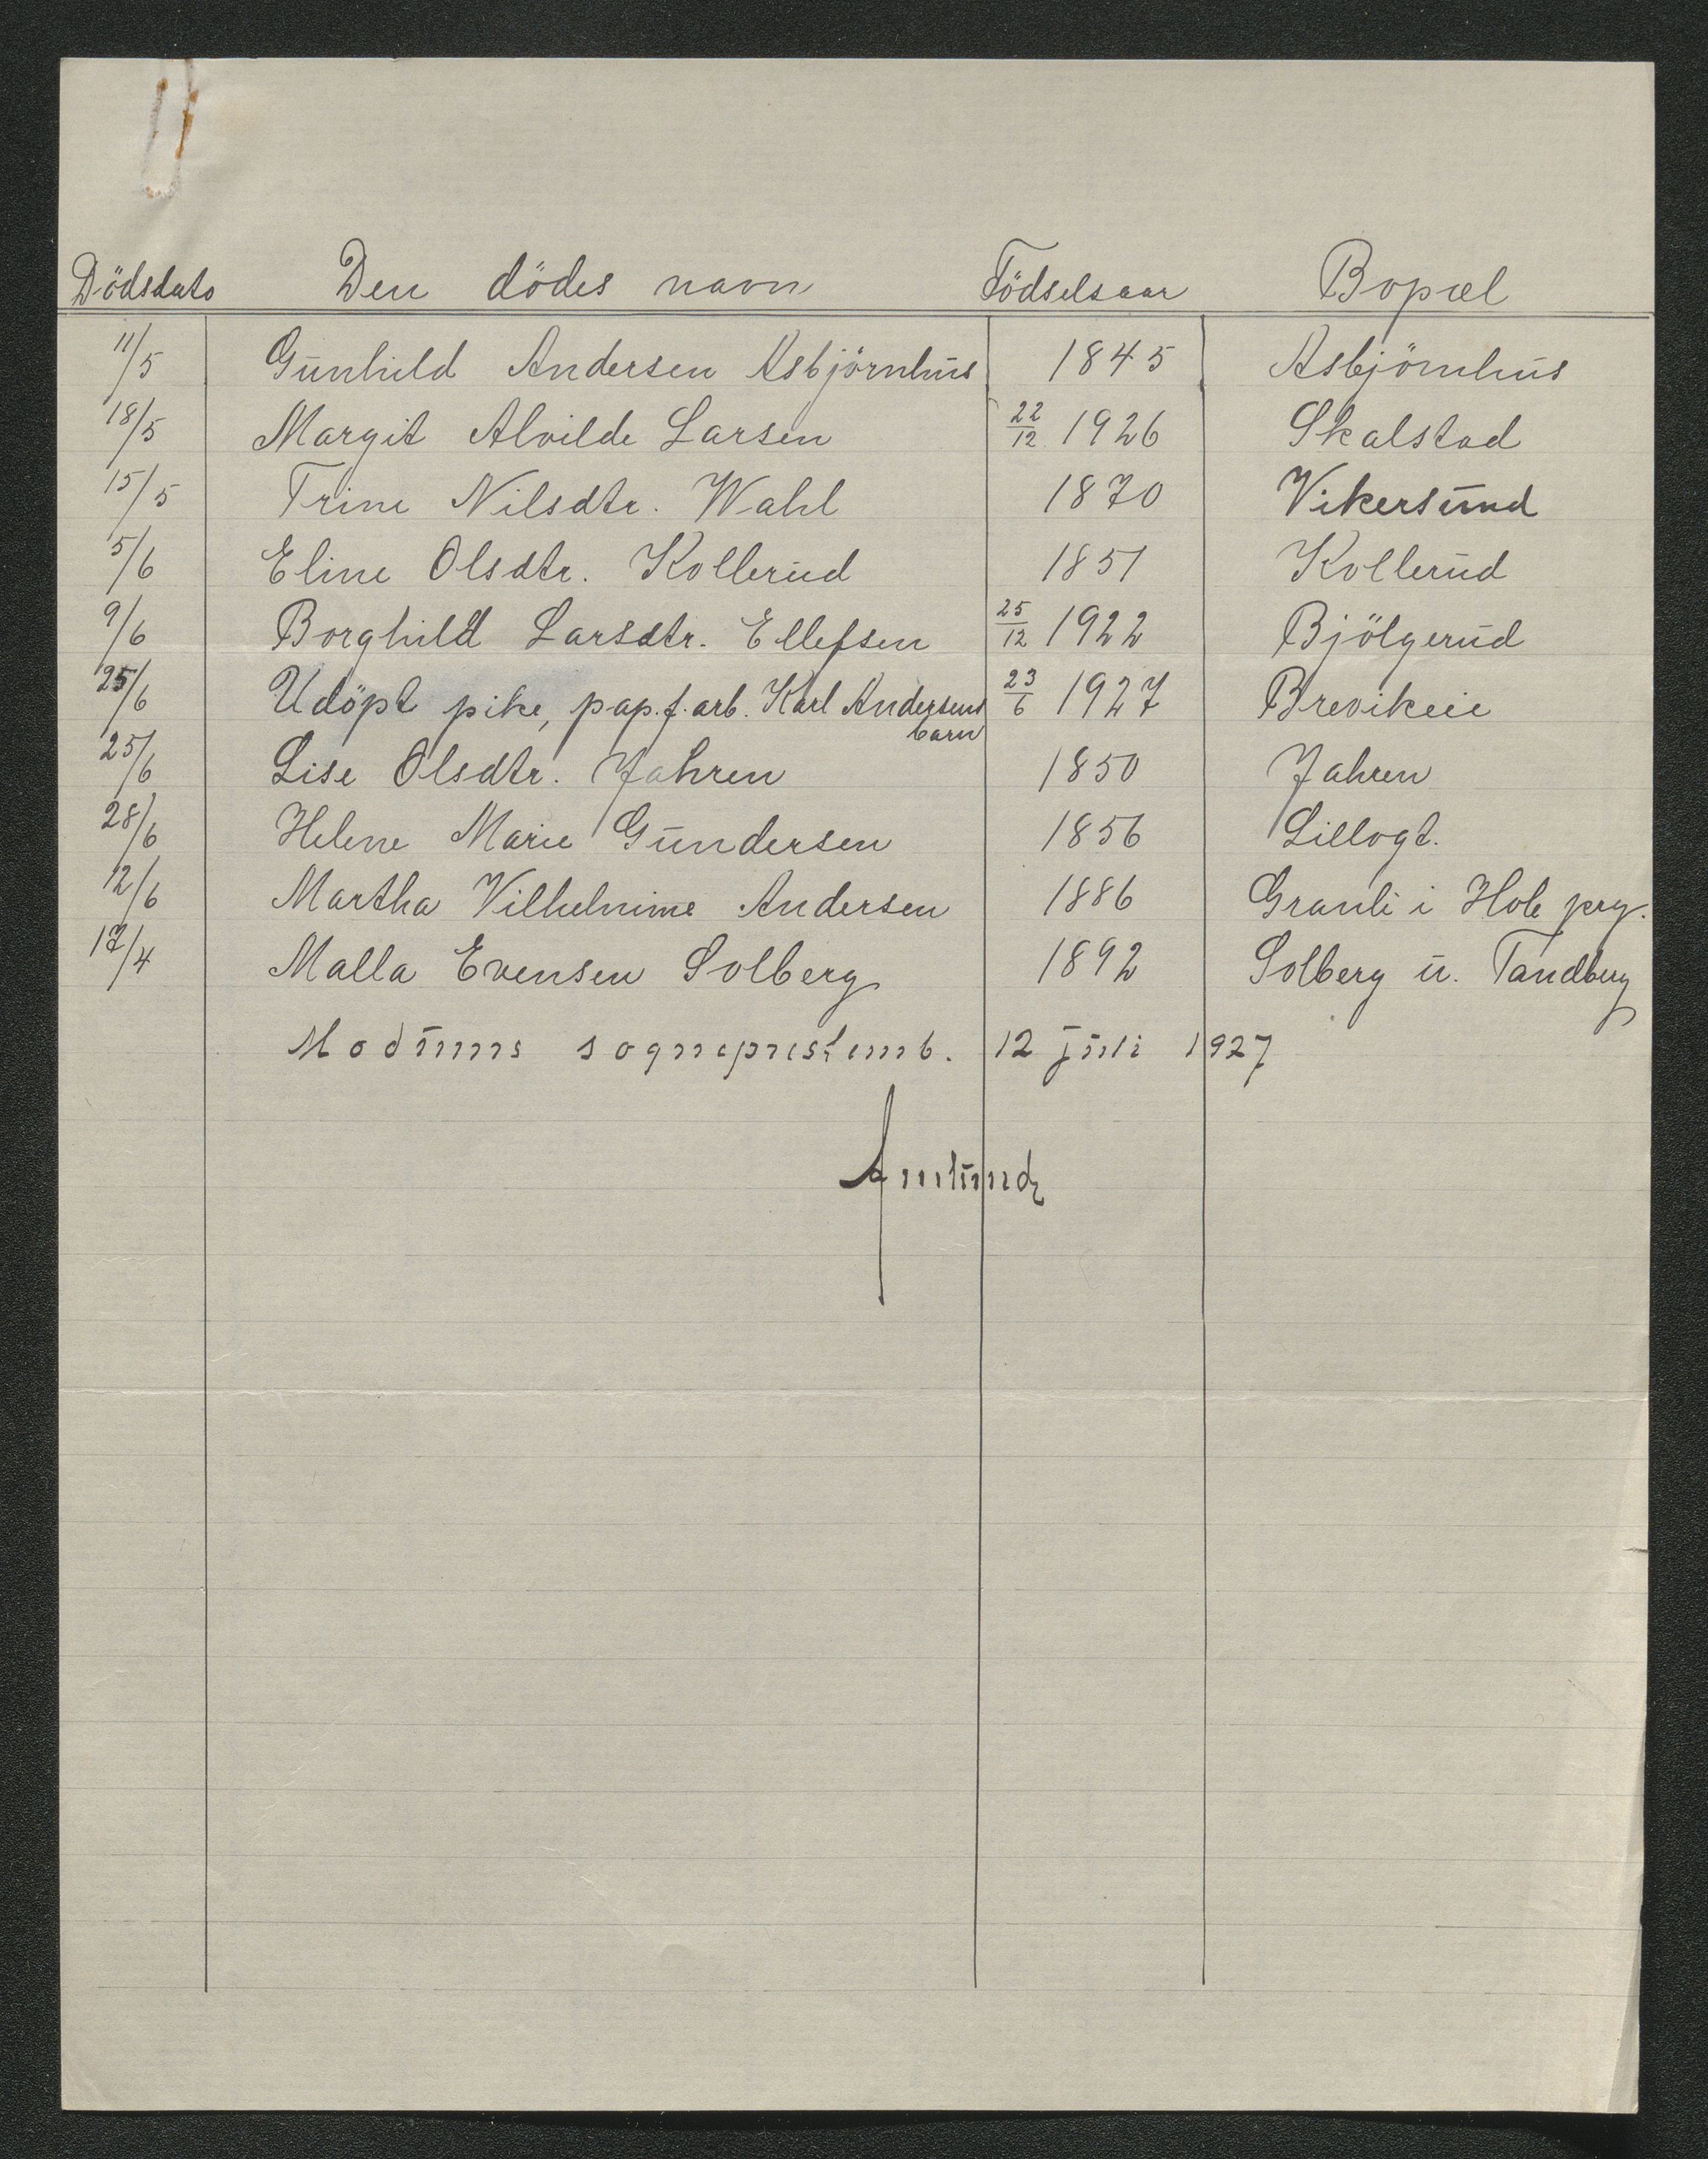 Dödsdato Den dödes navn Födselsaar Bopæl
11/5 Gunhild Andersen Asbjörnhus 1845 Asbjörnhus
18/5 Margit Alvilde Larsen 22/12 1926 Skalstad
15/5 Trine Nilsdtr. Wahl 1870 Vikersund
5/6 Eline Olsdtr. Kollerud 1851 Kollerud
9/6 Borghild Larsdtr. Ellefsen 25/12 1922 Bjölgerud
25/6 Udöpt pike, pap.f.arb. Karl Andersens barn 23/6 1927 Brevikeie
25/6 Lise Olsdtr. Jahren 1850 Jahren
28/6 Helene Marie Gundersen 1856 Lillogt.
12/6 Martha Vilhelmine Andersen 1886 Granli i Hole prg.
17/4 Malla Evensen Solberg 1892 Solberg u. Tandberg
Modums sogneprestemb. 12 juli 1927
Amlund